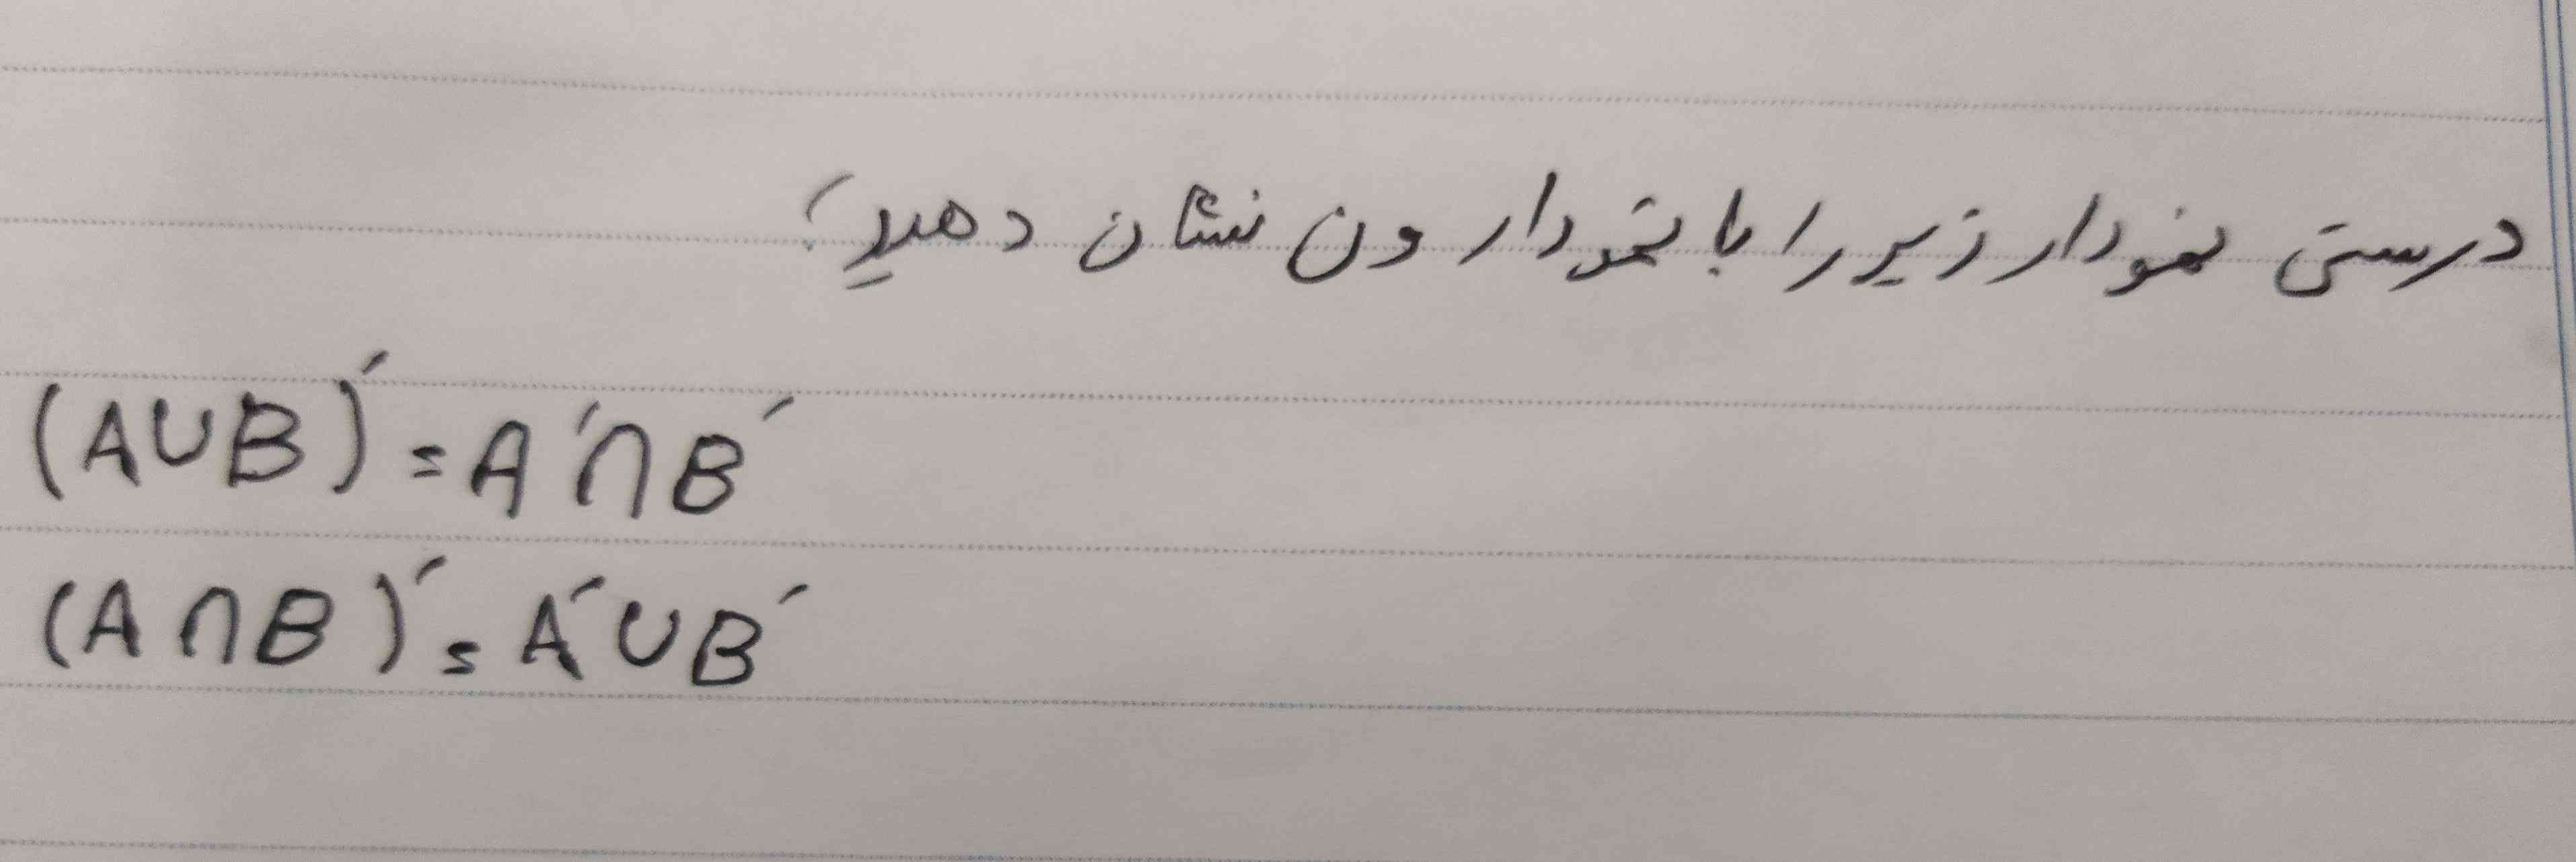 درستی نمودار زیر را با نمودار ون نشان دهید؟
(A∪B)′ = A′∩B′
(A∩B)′ = A′∪B′